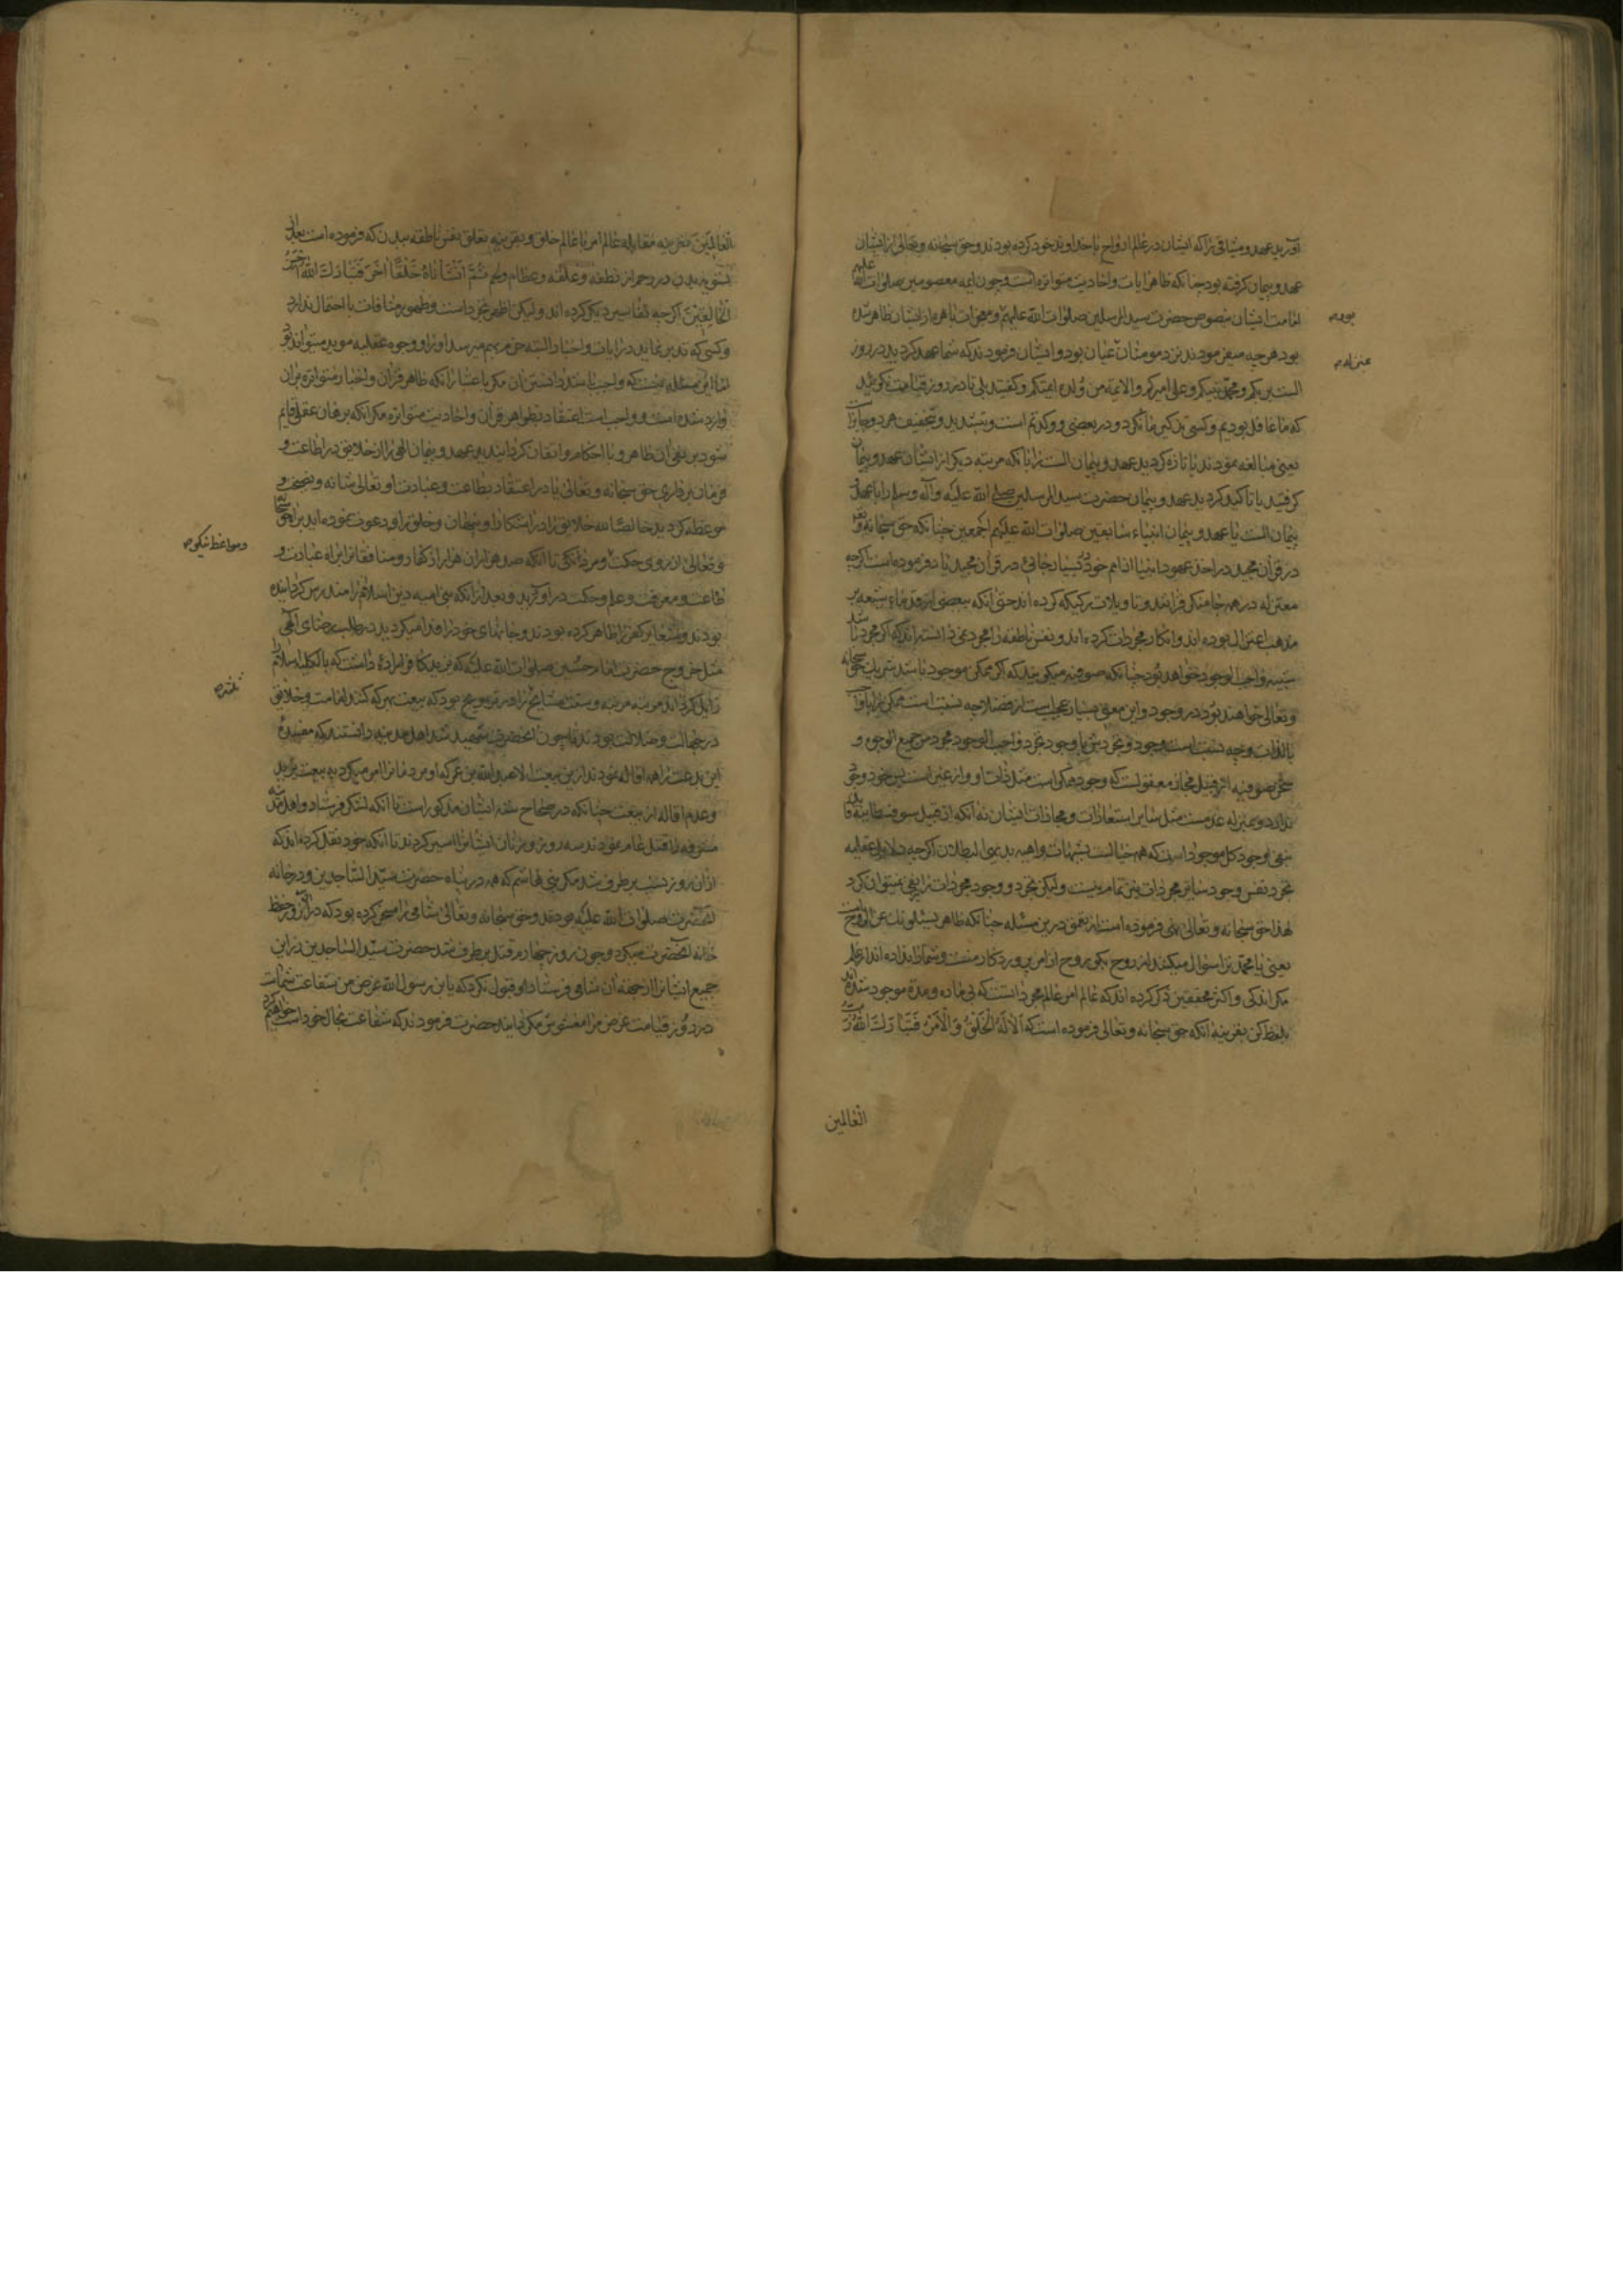 آورید عهد و میثاقی را که ایشان در عالم ارواح با خداوند خود کرده بودند و حق سبحانه و تعالی از ایشان
عهد و پیمان گرفته بود چنانکه ظاهر آیات و احادیث متواتره است و چون ایمه معصومین صلوات الله علیهم
امامت ایشان بنصوص حضرت سید المرسلین صلوات الله علیهم و معجزات باهره از ایشان ظاهر شده
بود هر چه میفرمودند نزد مومنان عیان بود و ایشان فرمودند که شما عهد کردید در روز
الست بربکم و محمد نبیکم و علی امیرکم والایمه من ولده ایمتکم و گفتند بلی تا در روز قیامت نگویید
که ما غافل بودیم و کسی تذکیر ما نکرد و در بعضی و وکدتم است و بتشدید و تخفیف هر دو جایز است
یعنی مبالغه نمودند یا تازه کردید عهد و پیمان الست را یا آنکه مرتبه دیگر از ایشان عهد و پیمان
گرفتید یا تاکید کردید عهد و پیمان حضرت سید المرسلین صلی الله علیه و آله و سلم را با عهد
پیمان الست یا عهد و پیمان انبیاء سابقین صلوات الله علیهم اجمعین چنانکه حق سبحانه و تعالی
در قرآن مجید در اخذ عهود انبیا از امم خود در بسیار جائی در قرآن مجید یاد فرموده است اگرچه
معتزله در همه جا منکر و تاویلات رکیکه کرده اند حتی آنکه بعضی از قدماء شیعه بر
مذهب اعتزال بوده اند و انکار مجردات کرده اند و نفس ناطقه را مجرد نمی دانسته اند که اگر مجرد باشد
شبیه واجب الوجود خواهد بود چنانکه صوفیه میگویند که اگر ممکن موجود باشد شریک حق سبحانه
و تعالی خواهند بود در وجود و این معنی بسیار عجیب است از فضلا چه نسبت است ممکن را با واجب
بالذات و چه نسبت است وجود و تجرد بشر با وجود تجرد واجب الوجود مجرد من جمیع الوجوه و
سخن صوفیه از قبیل مجاز معقولست که وجود ممکن است مثل ذات او و از غیر است پس خود وجودی
ندارد و بمنزله عدمست مثل سایر استعارات و مجازات ایشان نه آنکه از قبیل سوفسطاییه قایلند
بنفی وجود کل موجودات که همه خیالست بشبهات واهیه بدیهی البطلان اگرچه دلایل عقلیه
تجرد نفس و جود سایر مجردات نیز تمام نیست ولیکن تجرد و وجود مجردات را نفی نمیتوان کرد
لهذا حق سبحانه و تعالی نهی فرموده است از تعمق درین مسئله چنانکه ظاهر یسئلونک عن الروح است
یعنی یا محمد ترا سئوال میکنند از روح بگو روح از امر پروردگار منست و شما را نداده اند از علم
مگر اندکی و اکثر محققین ذکر کرده اند که عالم امر عالم مجرداتست که بی ماده و مدة موجود شده اند
بلفظ کن بقرینه آنکه حق سبحانه و تعالی فرموده است که الا له الخلق و الامر فتبارک الله رب
العالمین
العالمین بقرینه مقابله عالم امر با عالم خلق و بقرینه تعلق نفس ناطقه ببدن که فرموده است بعد از
تسویه بدن در رحم از نطفه و علقه و عظام و لحم ثم انشأناه خلقا آخر فتبارک الله احسن
الخالقین اگرچه تفاسیر دیگر کرده اند ولیکن اظهر تجرد است و ظهور منافات با احتمال ندارد
و کسی که تدبر نماید در آیات و اخبار البته جزمم میرسد او را و وجوه عقلیه موید میتواند بود
اما این مسئله نیست که واجب باشد دانستن آن مگر باعتبار آنکه ظاهر قرآن و اخبار متواتره بران
وارد شده است و واجب است اعتقاد بظواهر قرآن و احادیث متواتره مگر آنکه برهان عقلی قایم
شود بر نفی آن ظاهر و با احکام و اتقان گردانیدید عهد و پیمان الهی را از خلایق در اطاعت و
فرمان برداری حق سبحانه و تعالی یا در اعتقاد بطاعت و عبادت او تعالی شانه و نصیحت و
موعظه کردید خالصا لله خلایق را در اشکارا و پنهان و خلق را دعوت نموده اید براه حق سبحانه
و تعالی از روی حکمت و مردانگی تا آنکه صد هزاران هزار از کفار و منافقانرا براه عبادت و
طاعت و معرفت و علم و حکمت در آوردید و بعد از آنکه بنی امیه دین اسلام را مندرس گردانیده
بودند و شعایر کفر را ظاهر کرده بودند و جانهای خود را فدا میکردید در طلب رضای الهی
مثل خروج حضرت امام حسین صلوات الله علیه که یزید کافر اراده داشت که بالکلیه اسلام را
زایل گرداند مرتبه مرتبه و سنت مشایخ را و مروج بود که بیعت بهر که کنند امامت و خلایق
در جهالت و ضلالت بودند و چون آنحضرت شهید شد اهل مدینه دانستند که مفسدهٔ
این بدعت را همه اقاله نمودند ازین بیعت الا عبد الله بن عمر که او مردمانرا امر میکرد به بیعت یزید
و عدم اقاله از بیعت چنانکه در صحاح سته ایشان مذکور است تا آنکه لشکر فرستاد و اهل مدینه
مشرفه را قتل عام نمودند سه روز و زنان ایشانرا اسیر کردند تا آنکه خود نقل کرده اند که
ازان روز نسب بر طرف شد مگر بنی هاشم که همه در پناه حضرت سید الساجدین و در خانه
آنحضرت صلوات الله علیه بودند و حق سبحانه و تعالی شامی را مسخر کرده بود که در آن روز حفظ
خانه آنحضرت میکرد و چون روز چهارم قتل بر طرف شد حضرت سید الساجدین زراین
جمیع ایشانرا از جهة آن شامی فرستاد او قبول نکرد که یابن رسول الله غرض من شفاعت شماست
در روز قیامت عوض مرا مغشوش مگردانید حضرت فرمودند که شفاعت بحال خود است خواهیم کرد
و مواعظ نیکو